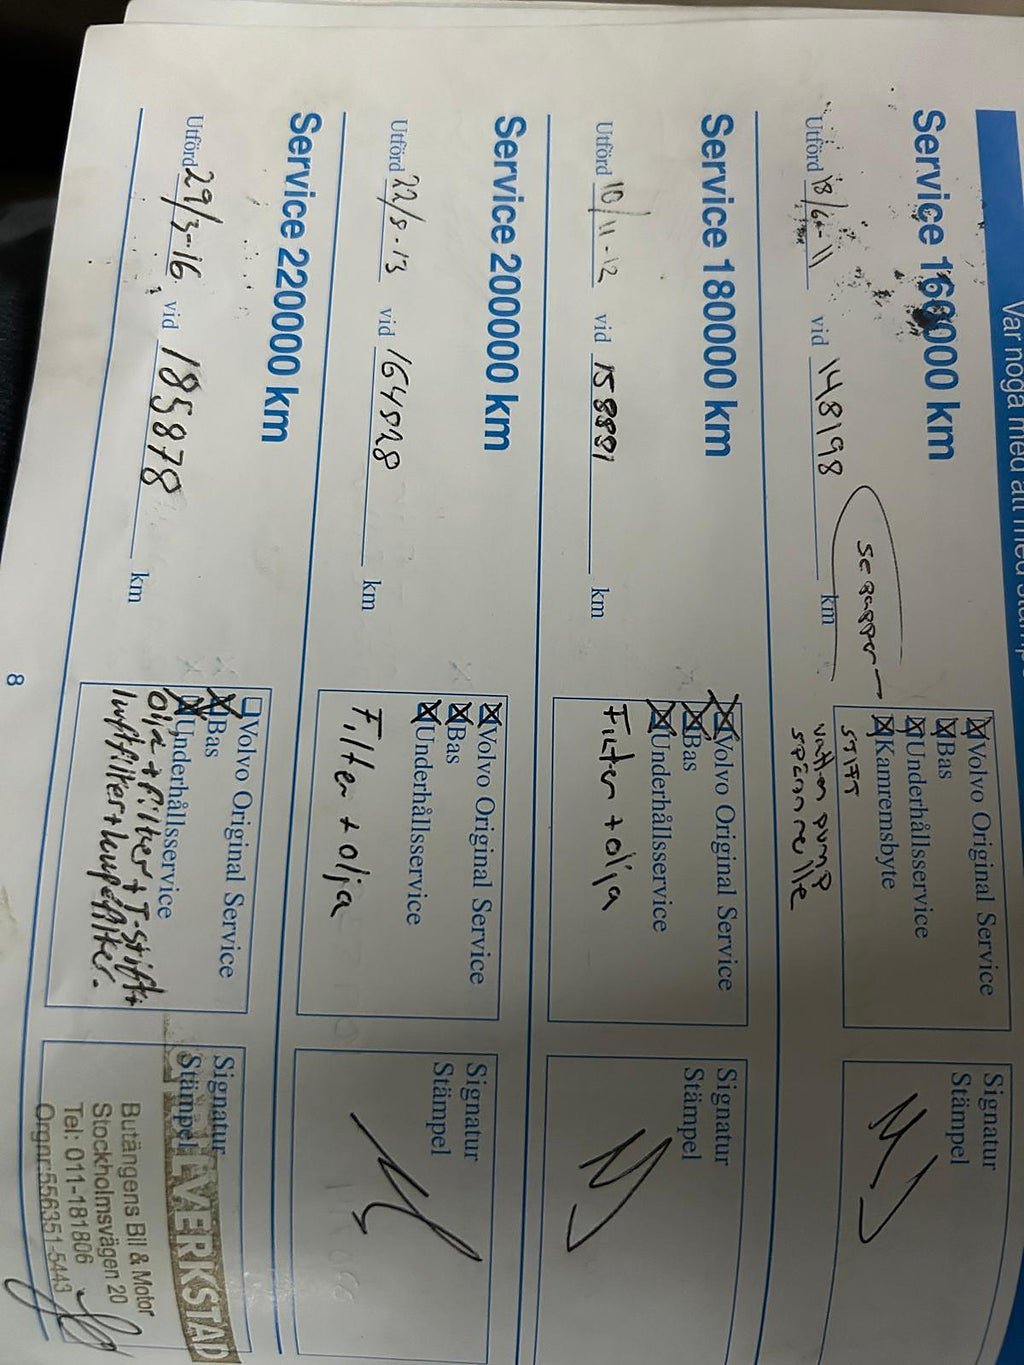 Var noga med att med
Service 160000 km
Utförd 18/6-11 vid 148198 km
se papper
Volvo Original Service
Bas
Underhållsservice
Kamremsbyte
STIFT
vatten pump
spännrulle
Signatur
Stämpel
Service 180000 km
Utförd 10/11-12 vid 158891 km
Volvo Original Service
Bas
Underhållsservice
Filter + olja
Signatur
Stämpel
Service 200000 km
Utförd 22/9-13 vid 164928 km
Volvo Original Service
Bas
Underhållsservice
Filter + olja
Signatur
Stämpel
Service 220000 km
Utförd 29/3-16 vid 185878 km
Volvo Original Service
Bas
Underhållsservice
Olja + filter + T-stift +
luftfilter + kupéfilter.
Signatur
Stämpel
VERKSTAD
Butängens Bil & Motor
Stockholmsvägen 20
Tel: 011-181806
Orgnr:556351-5443
8